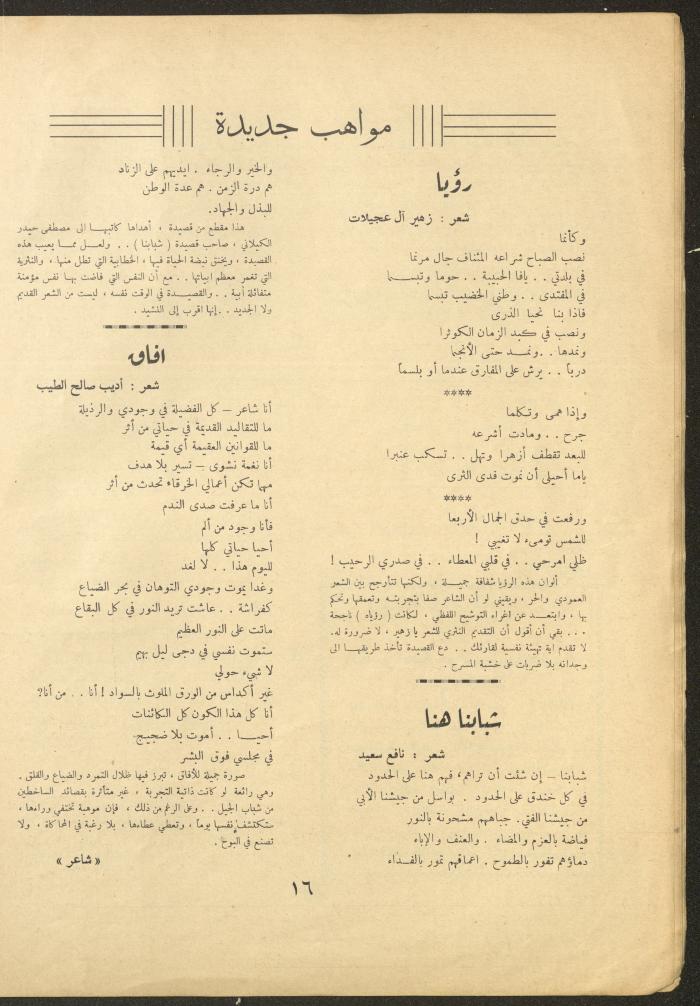 مواهب جديدة
رؤيا
شعر : زهير آل عجيلات
وكأنما
نصب الصباح شراعه المئناف جال مرنما
في بلدتي . . يافا الحبيبة . . حوما وتبسما
في المفتدى . . وطني الخضيب تبسما
فاذا بنا نحبا الذرى
ونصب في كبد الزمان الكوثرا
ونمدها . . ونمد حتى الأنجما
درباً . . يرش على المفارق عندما أو بلسماً
****
وإذا همى وتكلما
جرح . . ومادت أشرعه
للبعد تقطف أزهرا وتهل . . تسكب عنبرا
ياما أحيلى أن نموت فدى الثرى
****
ورفعت في حدق الجمال الأربعا
للشمس تومىء لا تغيبي !
ظلي امرحي . . في قلبي المعطاء . . في صدري الرحيب !
ألوان هذه الرؤيا شفافة جميلة ، ولكنها تتأرجح بين الشعر
العمودي والحر ، ويقيني لو أن الشاعر صفا بتجربته وتعمقها وتحكم
بها ، وابتعد عن اغراء التوشيح اللفظي ، لكانت ( رؤياه ) ناجحة
. . . بقي أن أقول أن التقديم النثري للشعر يا زهير ، لا ضرورة له.
لا تقدم اية تهيئة نفسية لقارئك . . دع القصيدة تأخذ طريقها الى
وجدانه بلا ضربات على خشبة المسرح .
شبابنا هنا
شعر : نافع سعيد
شبابنا – إن شئت أن تراهم، فهم هنا على الحدود
في كل خندق على الحدود . بواسل من جيشنا الأبي
من جيشنا الفتي. جباههم مشحونة بالنور
فياضة بالعزم والمضاء . والعنف والإباء
دماؤهم تفور بالطموح . اعماقهم تمور بالفداء
والخير والرجاء . ايديهم على الزناد
هم درة الزمن . هم عدة الوطن
للبذل والجهاد.
هذا مقطع من قصيدة ، أهداها كاتبها الى مصطفى حيدر
الكيلاني ، صاحب قصيدة ( شبابنا ) . . ولعل مما يعيب هذه
القصيدة ، ويخنق نبضة الحياة فيها ، الخطابية التي تطل منها ، والنثرية
التي تغمر معظم ابياتها . . مع أن النفس التي فاضت بها نفس مؤمنة
متفائلة أبية . . والقصيدة في الوقت نفسه ، ليست من الشعر القديم
ولا الجديد . . إنها اقرب إلى النشيد .
افاق
شعر : أديب صالح الطيب
أنا شاعر – كل الفضيلة في وجودي والرذيلة
ما للتقاليد القديمة في حياتي من أثر
ما للقوانين العقيمة أي قيمة
أنا نغمة نشوى – تسير بلا هدف
مهما تكن أعمالي الخرقاء تحدث من أثر
أنا ما عرفت صدى الندم
فأنا وجود من ألم
أحيا حياتي كلها
لليوم هذا . . لا لغد
وغدا يموت وجودي التوهان في بحر الضياع
كفراشة . . عاشت تريد النور في كل البقاع
ماتت على النور العظيم
ستموت نفسي في دجى ليل بهيم
لا شيء حولي
غير أكداس من الورق الملوث بالسواد ! أنا . . من أنا؟
أنا كل هذا الكون كل الكائنات
أحيا . . أموت بلا ضجيج
في مجلسي فوق البشر
صورة جميلة للأفاق ، تبرز فيها ظلال التمرد والضياع والقلق .
وهي رائعة لو كانت ذاتية التجربة ، غير متأثرة بقصائد الساخطين
من شباب الجيل . . وعلى الرغم من ذلك ، فإن موهبة تختفي وراءها ،
ستكتشف نفسها يوماً ، وتعطي عطاءها ، بلا رغبة في المحاكاة ، ولا
تصنع في البوح .
« شاعر »
١٦